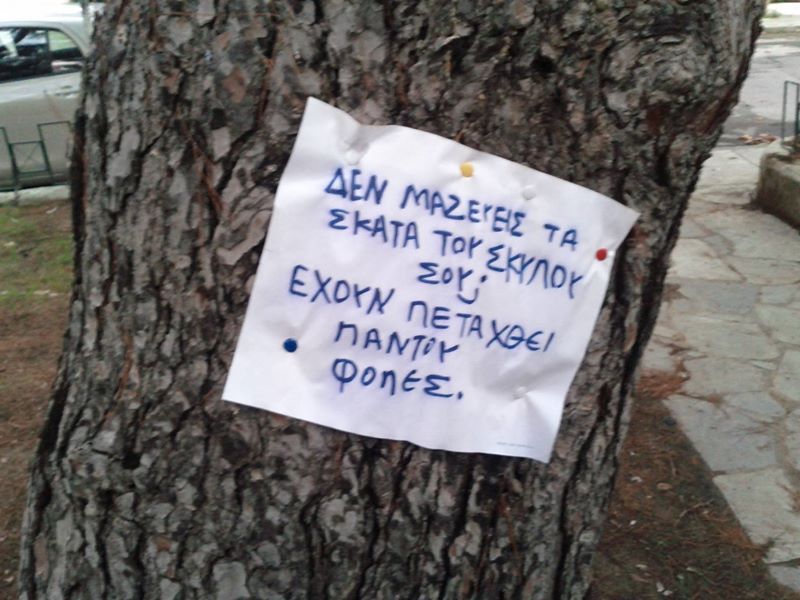 ΔΕΝ ΜΑΖΕΥΕΙΣ ΤΑ
ΣΚΑΤΑ ΤΟΥ ΣΚΥΛΟΥ
ΣΟΥ;
ΕΧΟΥΝ ΠΕΤΑΧΘΕΙ
ΠΑΝΤΟΥ
ΦΟΛΕΣ.